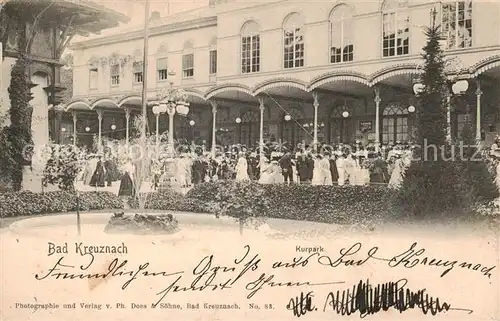 Bad Kreuznach
Kurpark.
Freundlichen Gruß aus Bad Kreuznach
sendet Ihnen
Photographie und Verlag v. Ph. Dees & Söhne, Bad Kreuznach, No. 83.